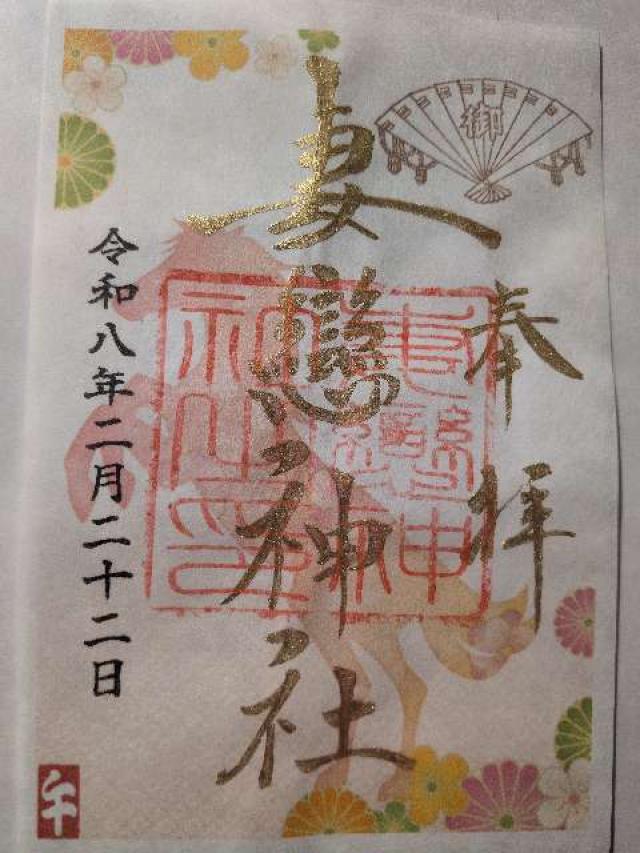 御
奉拝
妻戀神社
妻戀神社之印
令和八年二月二十二日
午